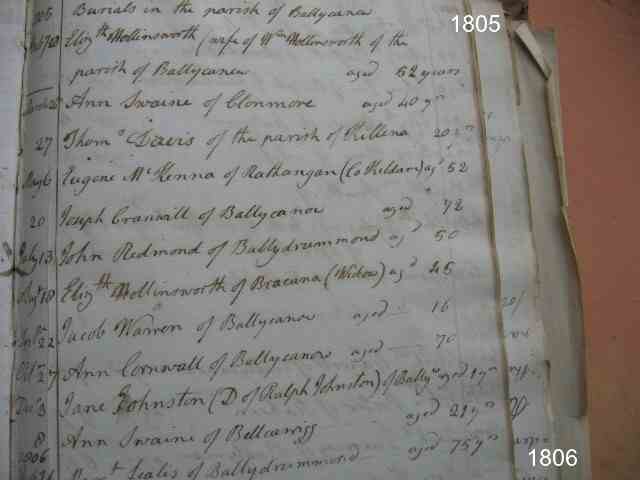 1805
Burials in the parish of Ballycanew
Elizth Hollinsworth (wife of Wm Hollinsworth of the
parish of Ballycanew aged 52 years
Ann Swaine of Clonmore aged 40 yrs
27 Thoms Davis of the parish of Killena 20
May 6 Eugene McKenna of Rathangan (Co Kildare) agd 52
20 Joseph Cranwill of Ballycanow aged 72
July 13 John Redmond of Ballydrummond agd 50
Augt 18 Elizth Hollinsworth of Bracana (Widow) agd 45
22 Jacob Warren of Ballycanow aged 16
Octr 27 Ann Cornwall of Ballycanow aged 70
Decr 3 Jane Johnston (D of Ralph Johnston) of Bally aged 1 yr
8 Ann Swaine of Bellcarrigg aged 21 yrs
1806
Sealis of Ballydrummond aged 75 yrs
1806